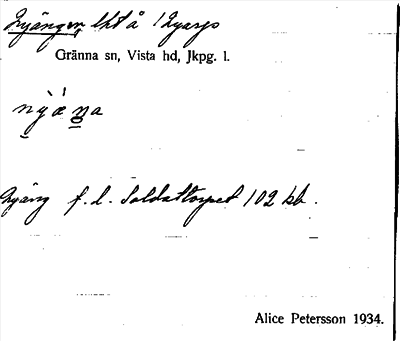 Nyängen, lht å Nyarp
Gränna sn, Vista hd, Jkpg. l.
nỳǽŋa
Nyäng f.d. Soldattorpet 102 kb.
Alice Petersson 1934.